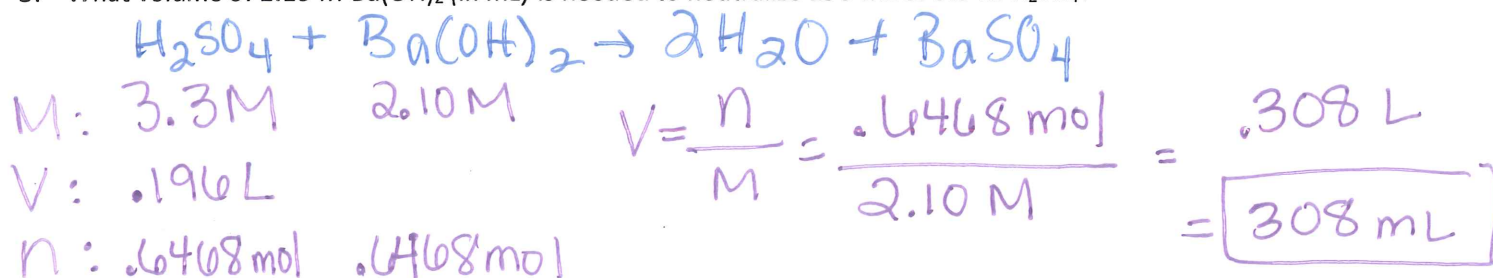 H₂SO₄ + Ba(OH)₂ → 2H₂O + BaSO₄
M: 3.3M 2.10M
V: .196L
n: .6468mol .6468mol
V = n/M = .6468mol/2.10M = .308L
= 308mL